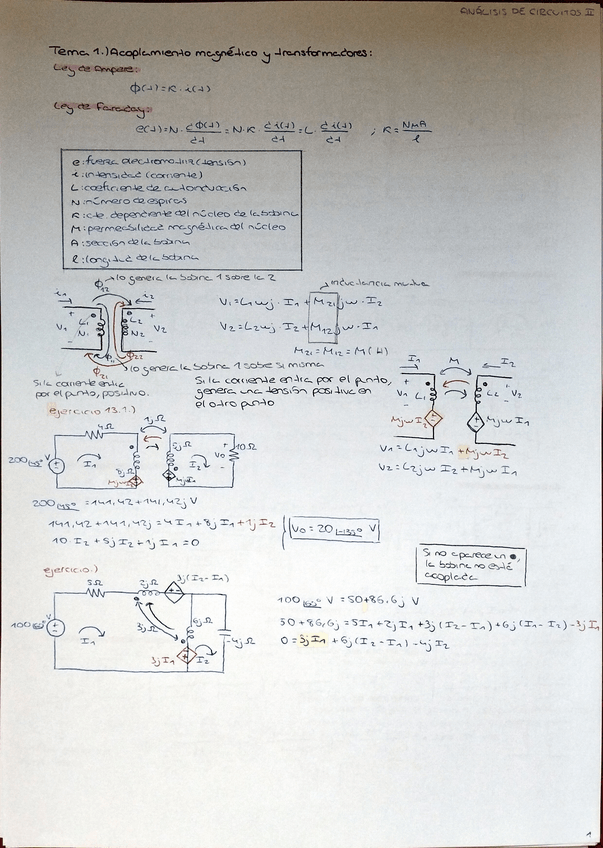 ANÁLISIS DE CIRCUITOS II
Tema 1.) Acoplamiento magnético y transformadores:
Ley de Ampere:
ϕ(t)=K·i(t)
Ley de Faraday:
e(t)=N·dϕ(t)/dt=N·K·di(t)/dt=L·di(t)/dt ; K=NMA/l
e:fuerza electromotriz(tensión)
i:intensidad(corriente)
L:coeficiente de autoinducción
N:número de espiras
K:cte. dependiente del núcleo de la bobina
M:permeabilidad magnética del núcleo
A:sección de la bobina
l:longitud de la bobina
ϕ12 lo genera la bobina 1 sobre la 2
inductancia mutua
i1 i2
V1 L1 N1 L2 N2 V2
V1=L1wj·I1+M21jw·I2
V2=L2wj·I2+M12jw·I1
M21=M12=M(H)
ϕ21 ϕ11 ϕ22
lo genera la bobina 1 sobre si misma
Si la corriente entra
por el punto, positivo.
Si la corriente entra por el punto,
genera una tensión positiva en
el otro punto
I1 M I2
V1 L1 L2 V2
MjwI2 MjwI1
V1=L1jwI1+MjwI2
V2=L2jwI2+MjwI1
ejercicio 13.1.)
4Ω 1jΩ
200|45° V I1 8jΩ 5jΩ I2 V0 10Ω
MjwI2 MjwI1
200|45°=141,42+141,42j V
141,42+141,42j=4I1+8jI1+1jI2
10·I2+5jI2+1jI1=0
V0=20|-135° V
Si no aparece un •,
la bobina no está
acoplada
ejercicio.)
5Ω 2jΩ 3j(I2-I1)
100|60° V I1 3jΩ 6jΩ -4jΩ
3jI1 I2
100|60° V=50+86,6j V
50+86,6j=5I1+2jI1+3j(I2-I1)+6j(I1-I2)-3jI1
0=3jI1+6j(I2-I1)-4jI2
1